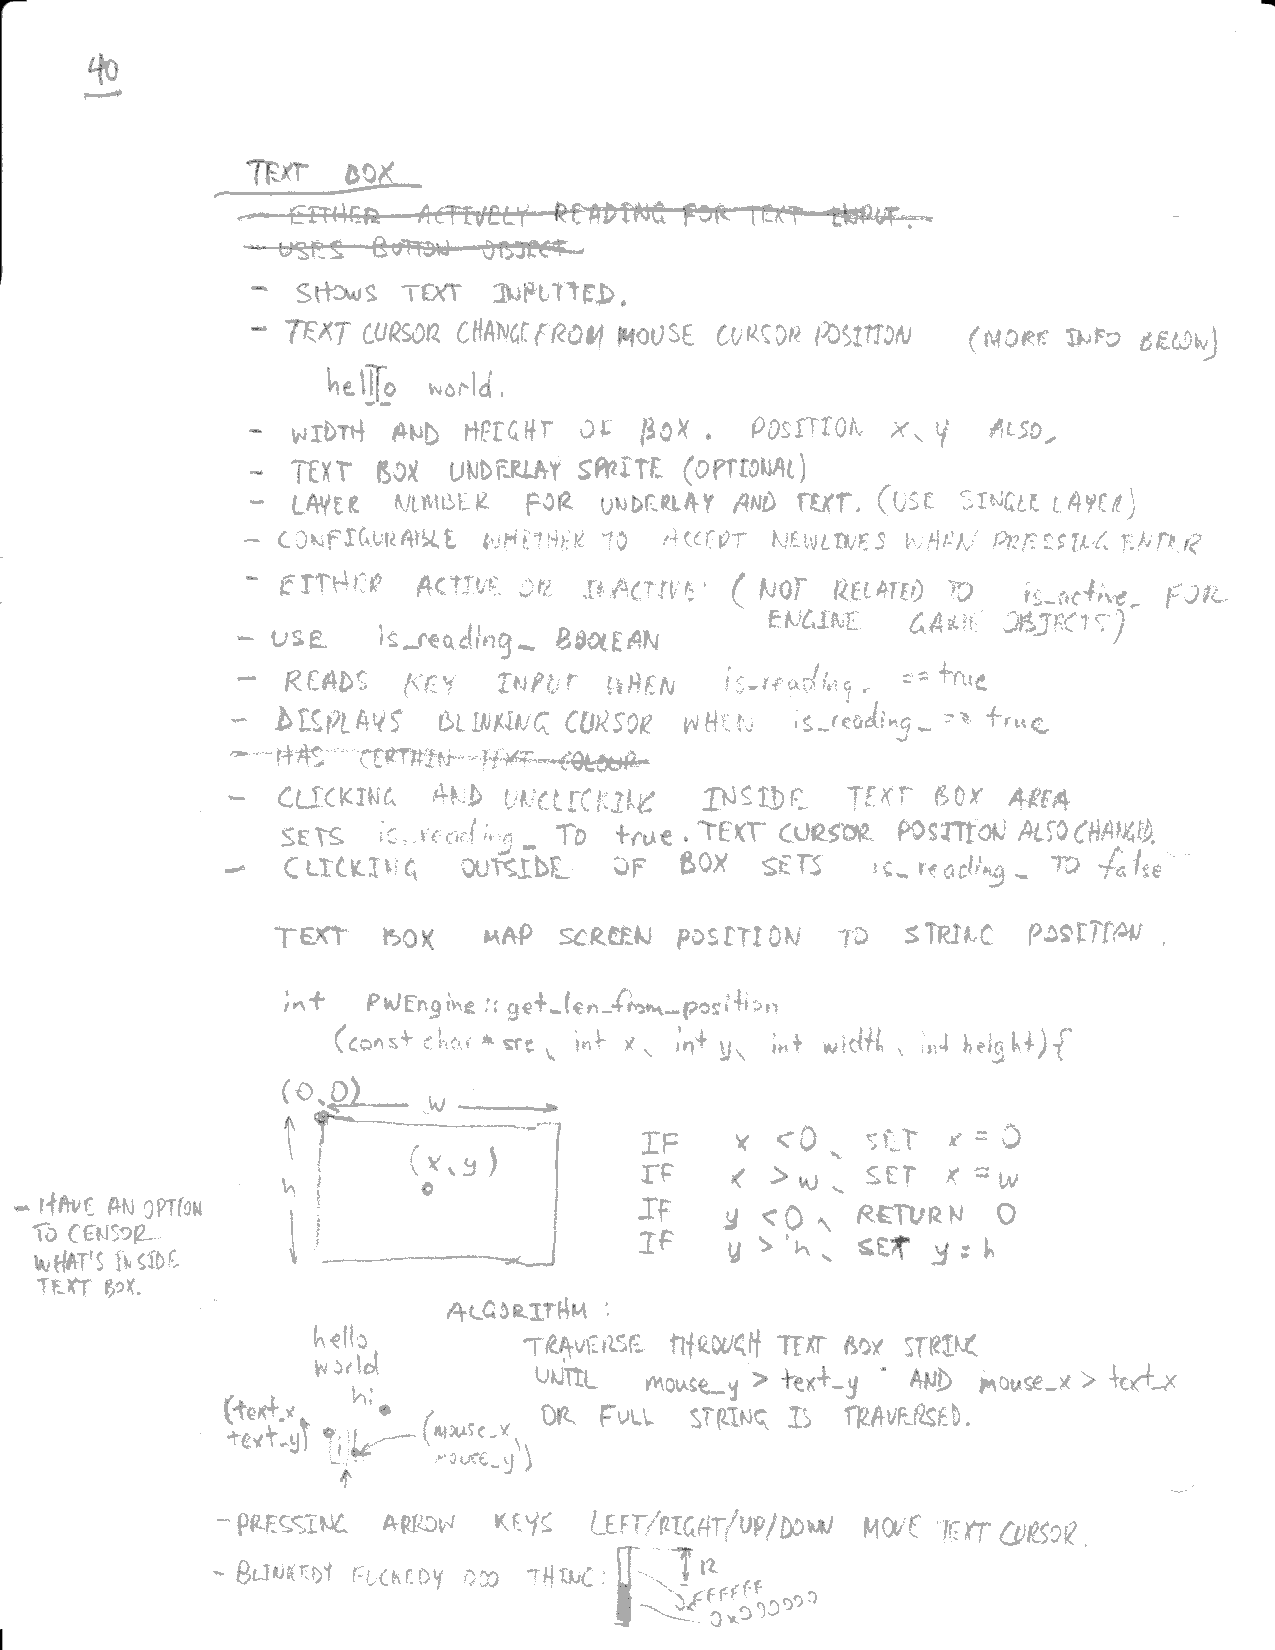 40
TEXT BOX
- EITHER ACTIVELY READING FOR TEXT INPUT.
- USES BUTTON OBJECT
- SHOWS TEXT INPUTTED.
- TEXT CURSOR CHANGE FROM MOUSE CURSOR POSITION (MORE INFO BELOW)
hello world.
- WIDTH AND HEIGHT OF BOX. POSITION x, y ALSO.
- TEXT BOX UNDERLAY SPRITE (OPTIONAL)
- LAYER NUMBER FOR UNDERLAY AND TEXT. (USE SINGLE LAYER)
- CONFIGURABLE WHETHER TO ACCEPT NEWLINES WHEN PRESSING ENTER
- EITHER ACTIVE OR INACTIVE (NOT RELATED TO is_active_ FOR
ENGINE GAME OBJECTS)
- USE is_reading_ BOOLEAN
- READS KEY INPUT WHEN is_reading_ == true
- DISPLAYS BLINKING CURSOR WHEN is_reading_ == true
- HAS CERTAIN TEXT COLOUR
- CLICKING AND UNCLICKING INSIDE TEXT BOX AREA
SETS is_reading_ TO true. TEXT CURSOR POSITION ALSO CHANGED.
- CLICKING OUTSIDE OF BOX SETS is_reading_ TO false
TEXT BOX MAP SCREEN POSITION TO STRING POSITION.
int PWEngine::get_len_from_position
(const char * src, int x, int y, int width, int height){
(0,0)
w
(x, y)
h
IF x < 0, SET x = 0
IF x > w, SET x = w
IF y < 0, RETURN 0
IF y > h, SET y = h
- HAVE AN OPTION
TO CENSOR
WHAT'S INSIDE
TEXT BOX.
ALGORITHM:
TRAVERSE THROUGH TEXT BOX STRING
UNTIL mouse_y > text_y AND mouse_x > text_x
OR FULL STRING IS TRAVERSED.
hello
world
hi
(text_x,
text_y)
(mouse_x,
mouse_y)
- PRESSING ARROW KEYS LEFT/RIGHT/UP/DOWN MOVE TEXT CURSOR.
- BLINKEDY FUCKEDY DOO THING:
12
0xFFFFFF
0x000000